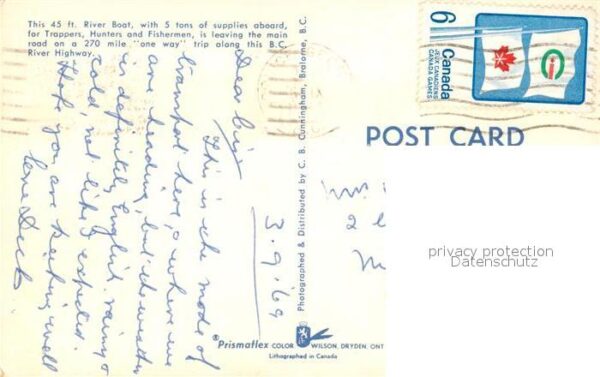 This 45 ft. River Boat, with 5 tons of supplies aboard,
for Trappers, Hunters and Fishermen, is leaving the main
road on a 270 mile "one way" trip along this B.C.
River Highway.
6
Canada
JEUX CANADIENS
CANADA GAMES
POST CARD
Dear
This is the mode of
transport here, & where we
are heading, but the weather
is definitely English, rainy &
cold, not like I expected.
Hope you are keeping well
love
3.9.'69
Photographed & Distributed by C. B. Cunningham, Bralorne, B.C.
Mrs
2
M
privacy protection
Datenschutz
Prismaflex COLOR WILSON, DRYDEN, ONT
Lithographed in Canada